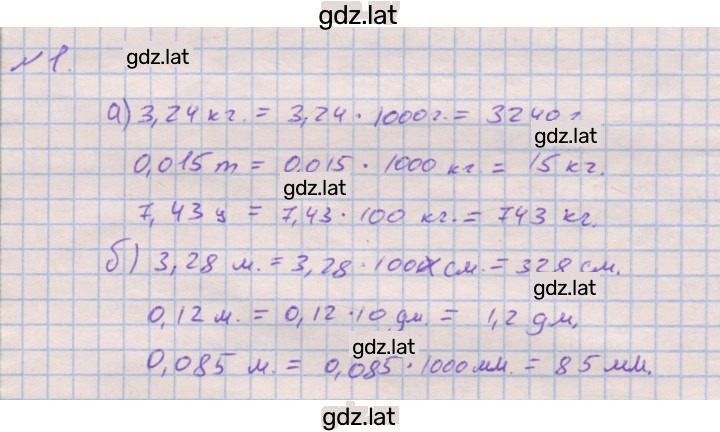 gdz.lat
№ 1.
gdz.lat
а) 3,24 кг. = 3,24 · 1000 г. = 3240 г
gdz.lat
0,015 т = 0.015 · 1000 кг. = 15 кг.
gdz.lat
7,43 ц = 7,43 · 100 кг. = 743 кг.
б) 3,28 м. = 3,28 · 100 см. = 328 см.
gdz.lat
0,12 м. = 0,12 · 10 дм. = 1,2 дм.
gdz.lat
0,085 м. = 0,085 · 1000 мм. = 85 мм.
gdz.lat